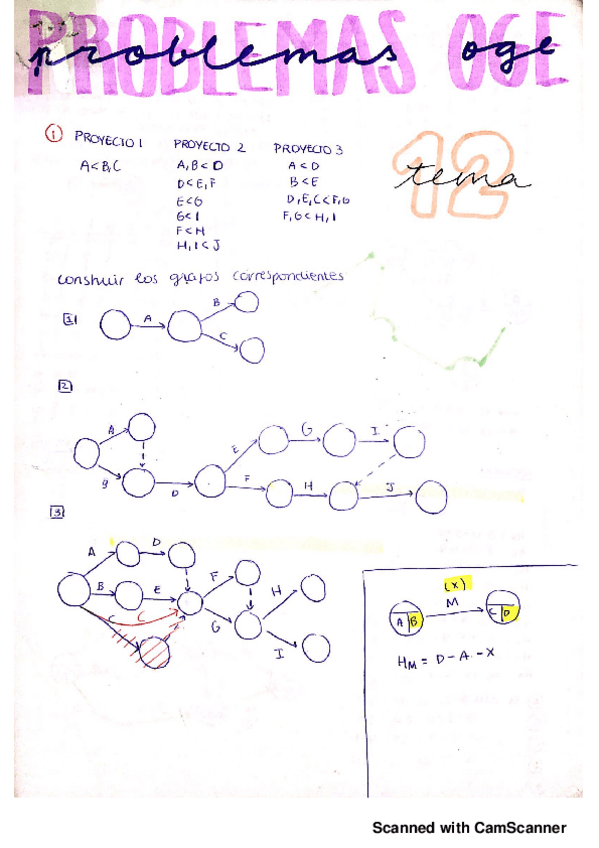 PROBLEMAS OGE
problemas oge
12
tema
① PROYECTO 1 PROYECTO 2 PROYECTO 3
A<B,C A,B<D A<D
D<E,F B<E
E<G D,E,C<F,G
G<I F,G<H,I
F<H
H,I<J
construir los grafos correspondientes
1
A B C
2
A B D E G I F H J
3
A D B E C C F G H I
(X)
M
A B C D
H_M = D-A-X
Scanned with CamScanner